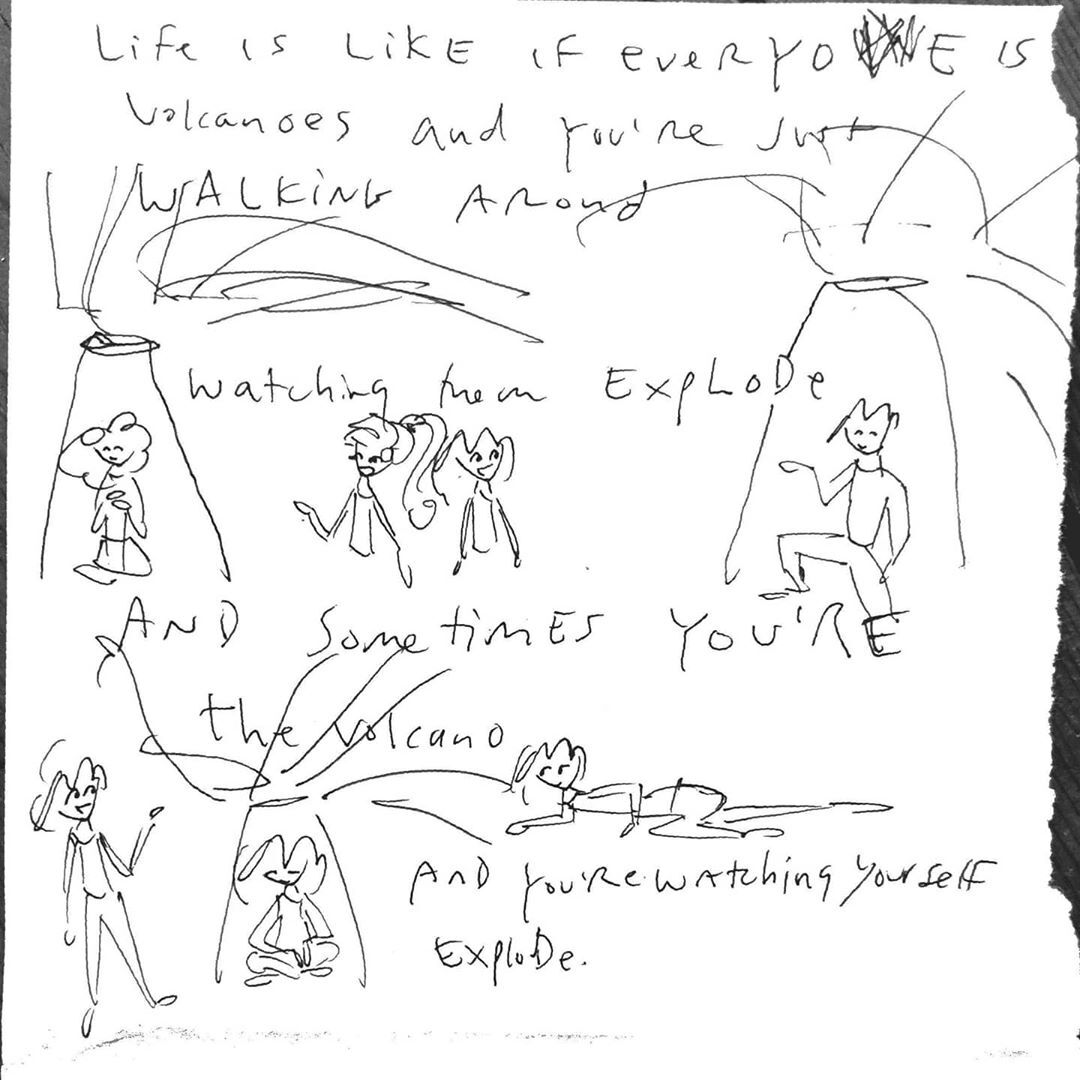 Life is Like if everyone is
Volcanoes and you're just
WALKING Around
watching them ExpLoDe
AND Sometimes YOU'RE
the Volcano
AnD you're watching yourself
ExploDe.